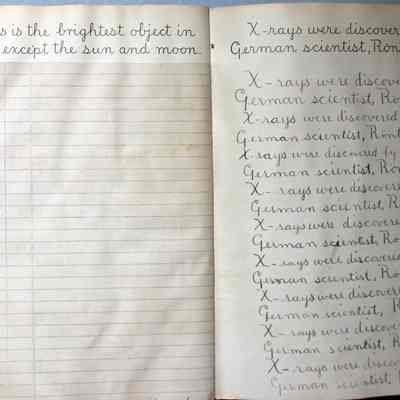 s is the brightest object in
except the sun and moon.
X-rays were discover
German scientist, Ron
X-rays were discove
German scientist, Ro
X-rays were discovered
German scientist, Ront
X-rays were discovered by
German scientist, Ro
X-rays were discovered
German scientist, Ro
X-rays were discovere
German scientist, Ro
X-rays were discovered
German scientist, Ro
X-rays were discovere
German scientist, R
X-rays were discove
German scientist, Ro
X-rays were disco
German scientist,